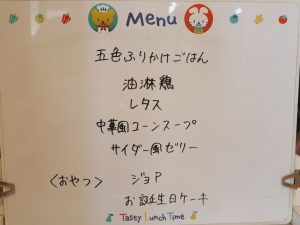 Menu
五色ふりかけごはん
油淋鶏
レタス
中華風コーンスープ
サイダー風ゼリー
<おやつ> ジョア
お誕生日ケーキ
Tasty Lunch Time